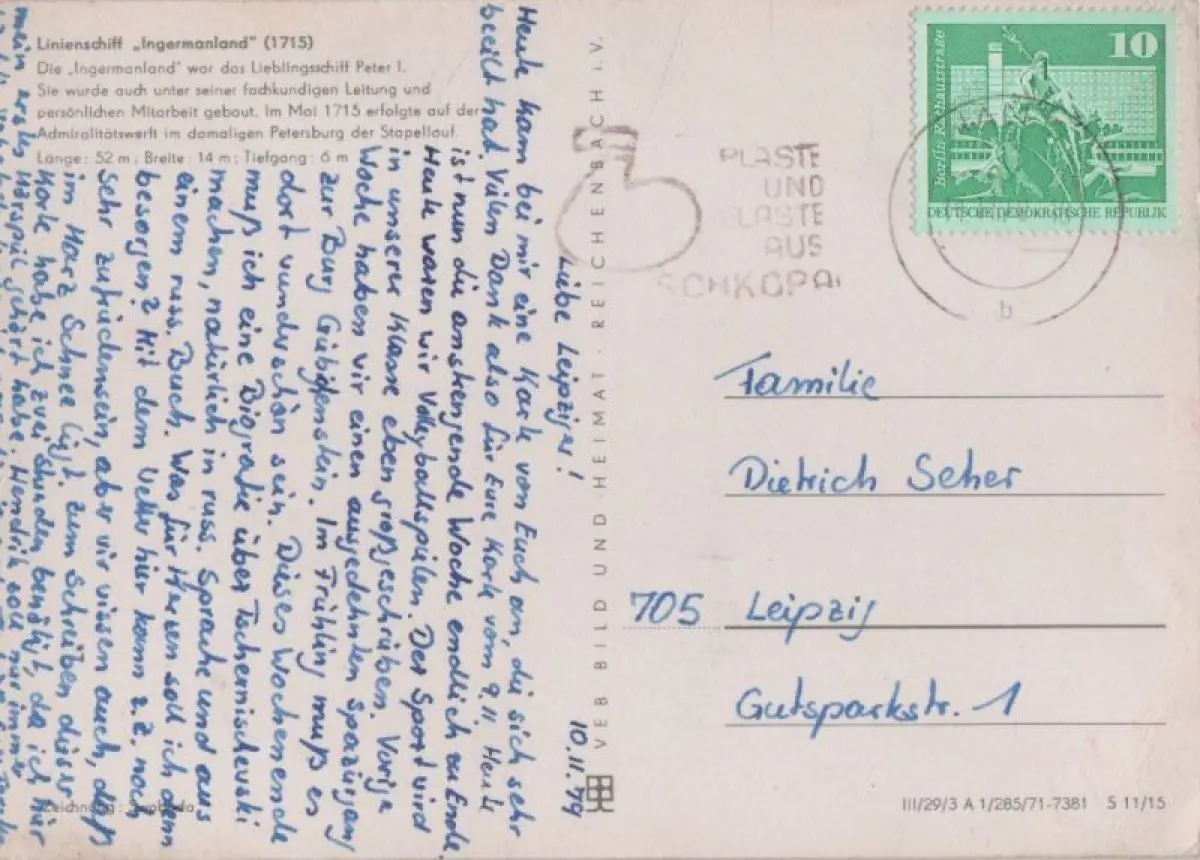 Linienschiff „Ingermanland" (1715)
Die „Ingermanland" war das Lieblingsschiff Peter I.
Sie wurde auch unter seiner fachkundigen Leitung und
persönlichen Mitarbeit gebaut. Im Mai 1715 erfolgte auf der
Admiralitätswerft im damaligen Petersburg der Stapellauf.
Länge: 52 m; Breite: 14 m; Tiefgang: 6 m
10.11.79
Liebe Leipziger!
Heute kam bei mir eine Karte von Euch an, die sich sehr
beeilt hat. Vielen Dank also für Eure Karte vom 9.11. Heute
ist nun die anstrengende Woche endlich zu Ende.
Heute waren wir Volleyballspielen. Der Sport wird
in unserer Klasse eben großgeschrieben. Vorige
Woche haben wir einen ausgedehnten Spaziergang
zur Burg Giebichenstein. Im Frühling muß es
dort wunderschön sein. Dieses Wochenende
muß ich eine Biografie über Tschernischevski
machen, natürlich in russ. Sprache und aus
einem russ. Buch. Was für Kursen soll ich denn
besorgen? Mit dem Wetter hier kann z.Z. noch
sehr zufriedensein, aber wir wissen auch, daß
im Harz Schnee liegt. Zum Schreiben dieser
Karte habe ich zwei Stunden benötigt, da ich hier
mein erstes Hörspiel gehört habe. Hendrik soll nur immer
Zeichnung: Swoboda
VEB BILD UND HEIMAT · REICHENBACH I. V.
PLASTE
UND
ELASTE
AUS
SCHKOPAU
10
Berlin Rathausstraße
DEUTSCHE DEMOKRATISCHE REPUBLIK
b
Familie
Dietrich Seher
705 Leipzig
Gutsparkstr. 1
III/29/3 A 1/285/71-7381 S 11/15